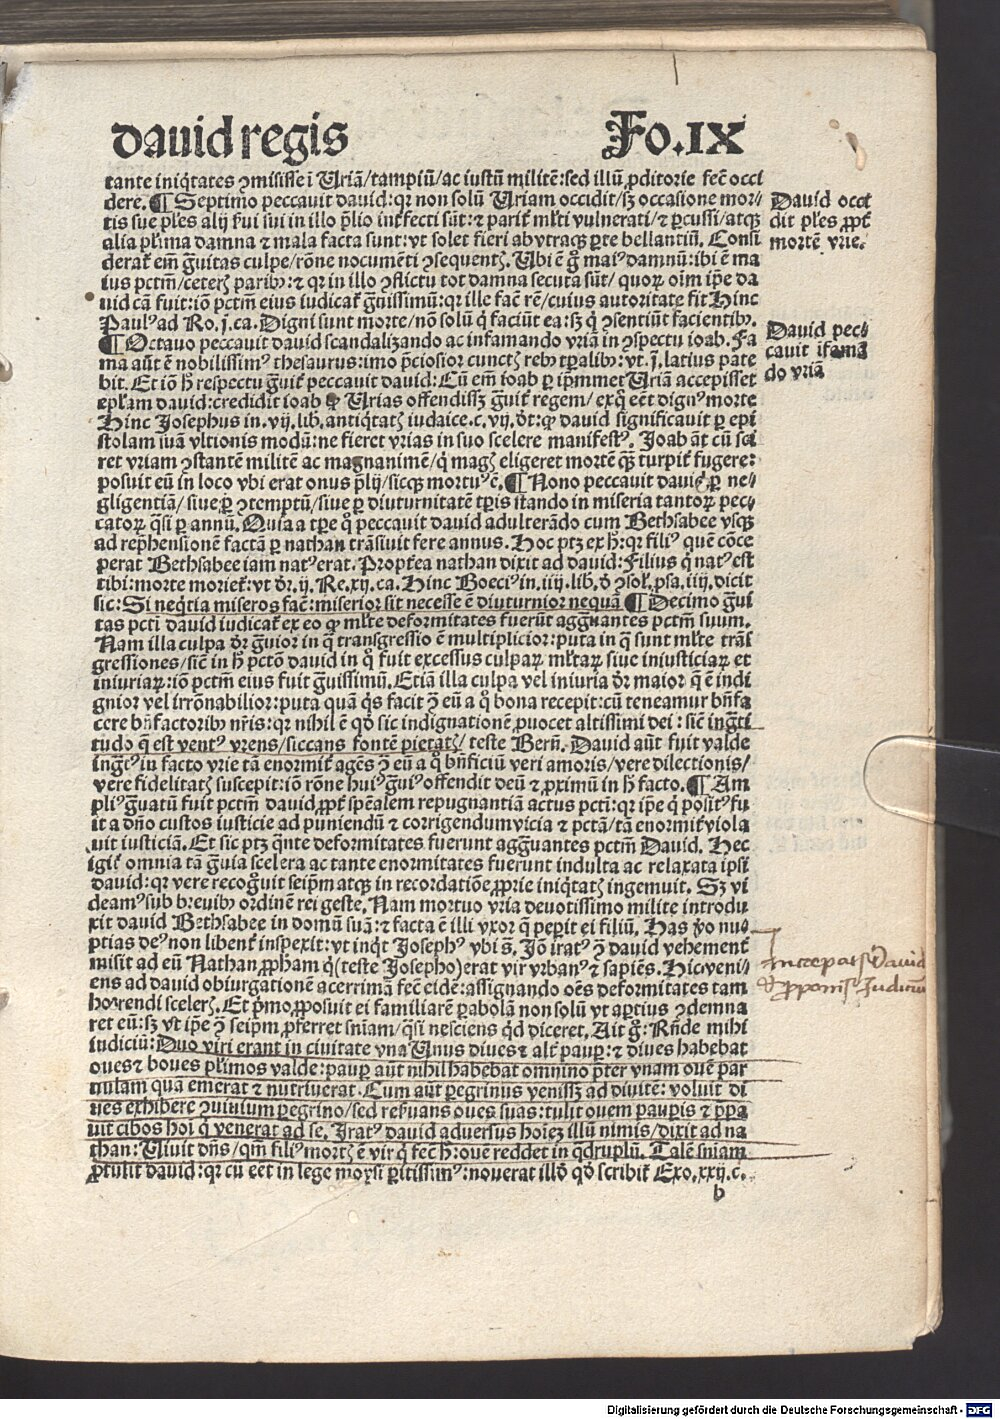 dauid regis
Fo.IX
tante iniq̃tates ɔmisisse ĩ Uriã/tam piũ/ac iustũ militẽ:sed illũ ꝓditorie fec̃ occi
dere.¶ Septimo peccauit dauid:qꝛ non solũ Uriam occidit/sꝫ occasione moꝛ/
tis sue pl̃es alij ẽui sui in illo p̃lio inťfecti sũt:⁊ parit̃ ml̃ti vulnerati/⁊ ꝑcussi/atqꝫ
alia pl̃ima damna ⁊ mala facta sunt:vt solet fieri ab vtraqꝫ ꝑte bellantiũ. Consi
derat̃ em̃ g̃uitas culpe/rõne nocumẽti ɔsequentꝭ. Ubi ẽ g̊ mai⁹ damnũ:ibi ẽ ma
ius pctm̃/ceterꝭ paribꝰ:⁊ qꝛ in illo ɔflictu tot damna secuta sũt/ quoꝝ oĩm ip̃e da
uid cã fuit:iõ pctm̃ eius iudicat̃ g̃uissimũ:qꝛ ille fac̃ rẽ/cuius autoritate fit Hinc
Paul⁹ ad Ro.j.ca. Digni sunt morte/nõ solũ q̇ faciũt ea:sꝫ q̇ ɔsentiũt facientibꝰ.
¶ Octauo peccauit dauid scandalizando ac infamando vriã in ɔspectu ioab. Fa
ma aũt ẽ nobilissim⁹ thesaurus:imo p̃ciosior cunctꝭ rebꝰ tꝑalibꝰ:vt.j.latius pate
bit. Et iõ h̃ respectu g̃uit̃ peccauit dauid: Cũ em̃ ioab ꝑ ip̃mmet Uriã accepisset
ep̃lam dauid:credidit ioab ꝙ Urias offendissꝫ g̃uit̃ regem/ exq̇ eẽt dign⁹ morte
Hinc Josephus in.vij.lib.antiq̃tatꝭ iudaice.c.vij.dt̃:ꝙ dauid significauit ꝑ epi
stolam suã vltionis modũ:ne fieret vrias in suo scelere manifest⁹. Joab añt cũ sci
ret vriam ɔstantẽ militẽ ac magnanimẽ/q̇ magꝭ eligeret mortẽ q̃ꝫ turpit̃ fugere:
posuit eũ in loco vbi erat onus p̃lij/sicqꝫ mortu⁹ẽ.¶ Nono peccauit dauid ꝑ ne/
gligentiã/siue ꝑ ɔtemptũ/siue ꝑ diuturnitatẽ tꝑis stando in miseria tantoꝝ pec/
catoꝝ q̃si ꝑ annũ. Quia a tꝑe q̊ peccauit dauid adulterãdo cum Bethsabee vsqꝫ
ad rep̃hensionẽ factã ꝑ nathan trãsiuit fere annus. Hoc ptꝫ ex h̃:qꝛ fili⁹ quẽ cõce
perat Bethsabee iam nat⁹erat. Propt̃ea nathan dixit ad dauid: Filius q̇ nat⁹est
tibi:morte moriet̃:vt dr̃.ij. Re.xij.ca. Hinc Boeci⁹in.iiij.lib.d̃ ɔsol.ꝓsa.iiij.dicit
sic: Si neq̃tia miseros fac̃:miserior sit necesse ẽ diuturnior nequã ¶ Decimo g̃ui
tas pcti dauid iudicat̃ ex eo ꝙ ml̃te deformitates fuerũt agg̃uantes pctm̃ suum.
Nam illa culpa dr̃ g̃uior in q̃ transgressio ẽ multiplicior:puta in q̃ sunt ml̃te trãs/
gressiones/sic̃ in h̃ pctõ dauid in q̊ fuit excessus culpaꝝ ml̃taꝝ siue iniusticiaꝝ et
iniuriaꝝ:iõ pctm̃ eius fuit g̃uissimũ. Etiã illa culpa vel iniuria dr̃ maior q̃ ẽ indi
gnior vel irrõnabilior:puta quã q̇s facit ɔ̃ eũ a q̊ bona recepit:cũ teneamur bñfa
cere bñfactoribꝰ nr̃is:qꝛ nihil ẽ qd̃ sic indignationẽ ꝓuocet altissimi dei : sic̃ ing̃ti
tudo q̃ est vent⁹ vrens/siccans fontẽ pietatꝭ/ teste Berñ. Dauid aũt fuit valde
ing̃t⁹in facto vrie tã enormit̃ agẽs ɔ̃ eũ a q̊ bñficiũ veri amoris/vere dilectionis/
vere fidelitatꝭ suscepit:iõ rõne hui⁹g̃ui⁹offendit deũ ⁊ ꝓximũ in h̃ facto.¶ Am
pli⁹g̃uatũ fuit pctm̃ dauid ꝓpt̃ sp̃ealem repugnantiã actus pcti:qꝛ ip̃e q̇ posit⁹fu
it a dño custos iusticie ad puniendũ ⁊ corrigendum vicia ⁊ pctã/tã enormit̃ viola
uit iusticiã. Et sic ptꝫ q̃nte deformitates fuerunt agg̃uantes pctm̃ Dauid. Hec
igit̃ omnia tã g̃uia scelera ac tante enormitates fuerunt indulta ac relaxata ipsi
dauid:qꝛ vere recog̃uit seip̃m atqꝫ in recordatiõe ꝓprie iniq̃tatꝭ ingemuit. Sꝫ vi
deam⁹sub breuibꝰ ordinẽ rei geste. Nam mortuo vria deuotissimo milite introdu
xit dauid Bethsabee in domũ suã:⁊ facta ẽ illi vxor q̃ peꝑit ei filiũ. Has ṽo nu/
ptias de⁹ non libent̃ inspexit:vt inq̃t Joseph⁹ vbi s̃. Jõ irat⁹ ɔ̃ dauid vehement̃
misit ad eũ Nathan ꝓpham q̇(teste Josepho)erat vir vrban⁹ ⁊ sapiẽs. Hic veni/
ens ad dauid obiurgationẽ acerrimã fec̃ eidẽ:assignando oẽs deformitates tam
horrendi scelerꝭ. Et p̃mo ꝓposuit ei familiarẽ ꝑabolã non solũ vt aꝑtius ɔdemna
ret eũ:sꝫ vt ip̃e ɔ̃ seip̃m ꝓferret sñiam/q̃si nesciens q̇d diceret. Ait g̊: Rñde mihi
iudiciũ: Duo viri erant in ciuitate vna Unus diues ⁊ alt̃ pauꝑ:⁊ diues habebat
oues ⁊ boues pl̃imos valde:pauꝑ aũt nihil habebat omnino p̃ter vnam ouẽ par
uulam quã emerat ⁊ nutriuerat. Cum aũt ꝑegrinus venissꝫ ad diuitẽ: voluit di
ues exhibere ɔuiuium ꝑegrino/sed reẽuans oues suas:tulit ouem pauꝑis ⁊ p̃pa
uit cibos hoi q̇ venerat ad se. Irat⁹ dauid aduersus hoiez illũ nimis/dixit ad na
than: Uiuit dñs/qm̃ fili⁹ mortꝭ ẽ vir q̇ fec̃ h̃:ouẽ reddet in q̃druplũ. Talẽ sñiam
ꝓtulit dauid:qꝛ cũ eẽt in lege moysi ꝑitissim⁹:nouerat illd̃ qd̃ scribit̃ Exo.xxij.c.
b
Dauid occi
dit pl̃es ꝓpt̃
mortẽ vrie.
Dauid pec/
cauit ĩfamã
do vriã
Dauid
Judiciũ